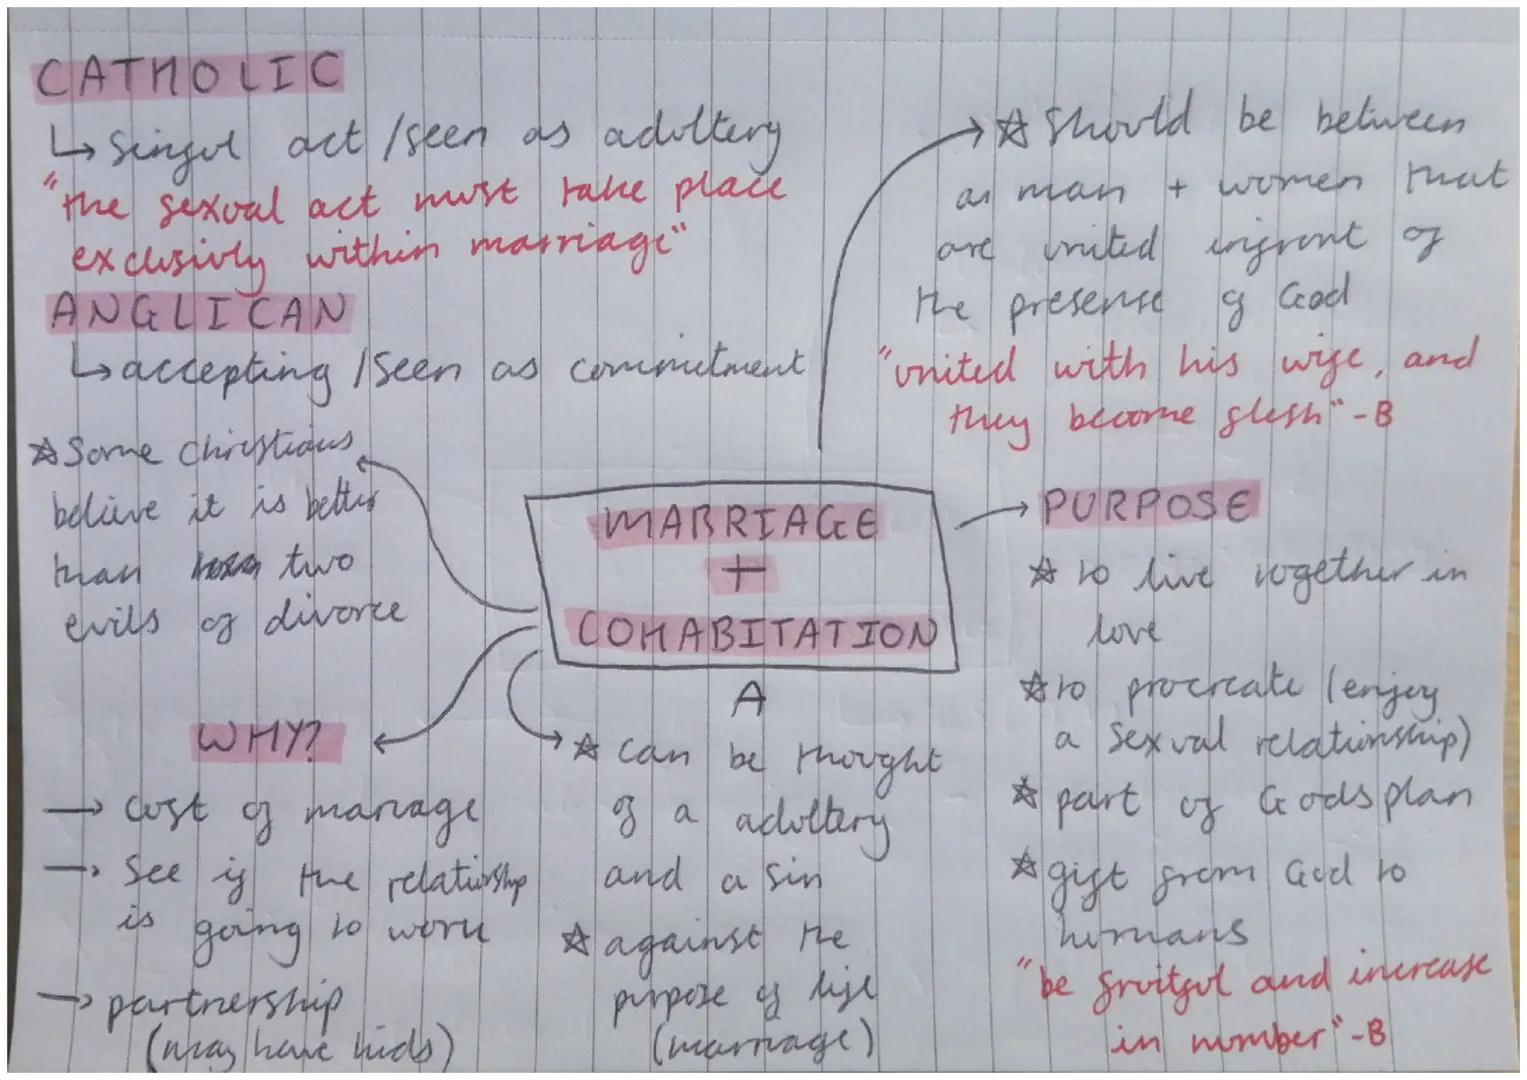 CATHOLIC
↳ Sinful act / seen as adultery
"the sexual act must take place
exclusivly within marriage"
ANGLICAN
↳ accepting / seen as commitment
☆ Some Christians
believe it is better
than two
evils of divorce
WHY?
→ cost of marriage
→ See if the relationship
is going to work
→ partnership
(may have kids)
MARRIAGE
+
COHABITATION
A
☆ can be thought
of a adultery
and a sin
☆ against the
purpose of life
(marriage)
☆ Should be between
a man + women that
are united infront of
the presense of God
"united with his wife, and
they become flesh" - B
PURPOSE
☆ to live together in
love
☆ to procreate (enjoy
a sexual relationship)
☆ part of Gods plan
☆ gift from God to
humans
"be fruitful and increase
in number" - B